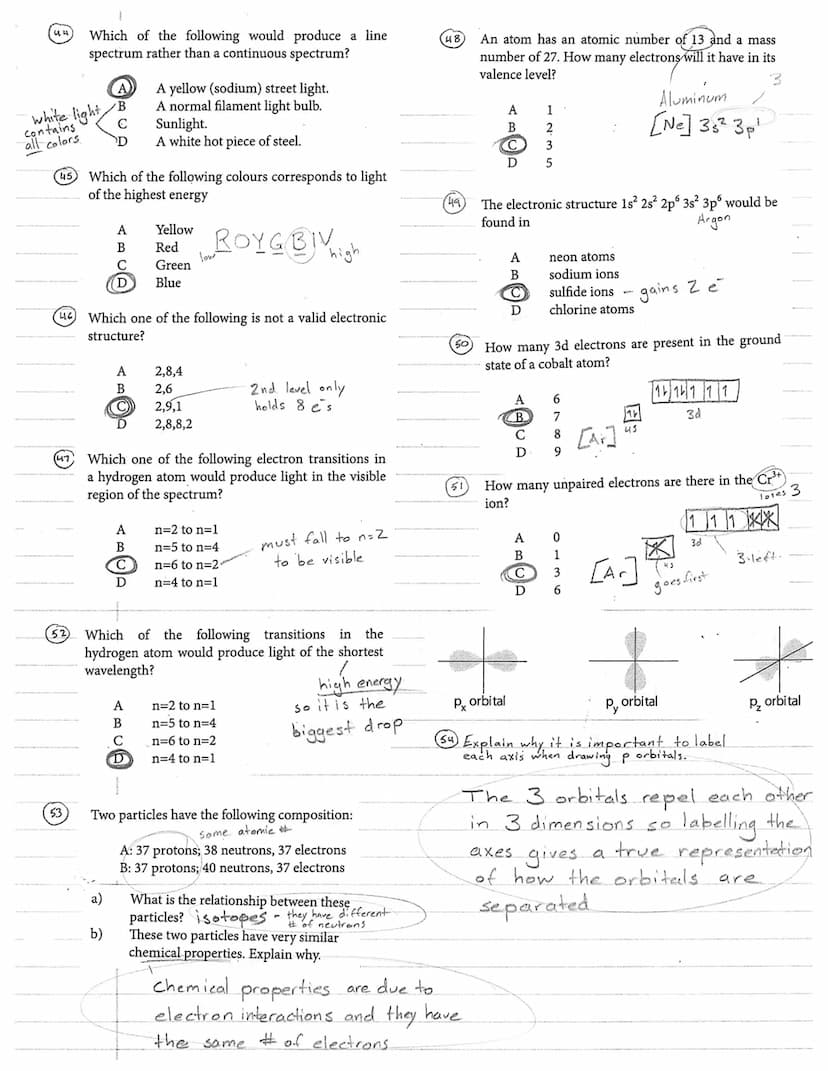 44 Which of the following would produce a line
spectrum rather than a continuous spectrum?
A A yellow (sodium) street light.
B A normal filament light bulb.
C Sunlight.
D A white hot piece of steel.
white light
contains
all colors
45 Which of the following colours corresponds to light
of the highest energy
A Yellow
B Red
C Green
D Blue
low ROYGBIV high
46 Which one of the following is not a valid electronic
structure?
A 2,8,4
B 2,6
C 2,9,1
D 2,8,8,2
2nd level only
holds 8 e⁻s
47 Which one of the following electron transitions in
a hydrogen atom would produce light in the visible
region of the spectrum?
A n=2 to n=1
B n=5 to n=4
C n=6 to n=2
D n=4 to n=1
must fall to n=2
to be visible
48 An atom has an atomic number of 13 and a mass
number of 27. How many electrons will it have in its
valence level?
3
A 1
B 2
C 3
D 5
Aluminum
[Ne] 3s² 3p¹
49 The electronic structure 1s² 2s² 2p⁶ 3s² 3p⁶ would be
found in
Argon
A neon atoms
B sodium ions
C sulfide ions – gains 2 e⁻
D chlorine atoms
50 How many 3d electrons are present in the ground
state of a cobalt atom?
A 6
B 7
C 8
D 9
[Ar] 4s 3d
51 How many unpaired electrons are there in the Cr³⁺
ion?
loses 3
A 0
B 1
C 3
D 6
[Ar] 4s 3d
goes first
3 left
52 Which of the following transitions in the
hydrogen atom would produce light of the shortest
wavelength?
A n=2 to n=1
B n=5 to n=4
C n=6 to n=2
D n=4 to n=1
high energy
so it is the
biggest drop
53 Two particles have the following composition:
same atomic #
A: 37 protons; 38 neutrons, 37 electrons
B: 37 protons; 40 neutrons, 37 electrons
a) What is the relationship between these
particles? isotopes – they have different
# of neutrons
b) These two particles have very similar
chemical properties. Explain why.
Chemical properties are due to
electron interactions and they have
the same # of electrons
pₓ orbital pᵧ orbital p_z orbital
54 Explain why it is important to label
each axis when drawing p orbitals.
The 3 orbitals repel each other
in 3 dimensions so labelling the
axes gives a true representation
of how the orbitals are
separated